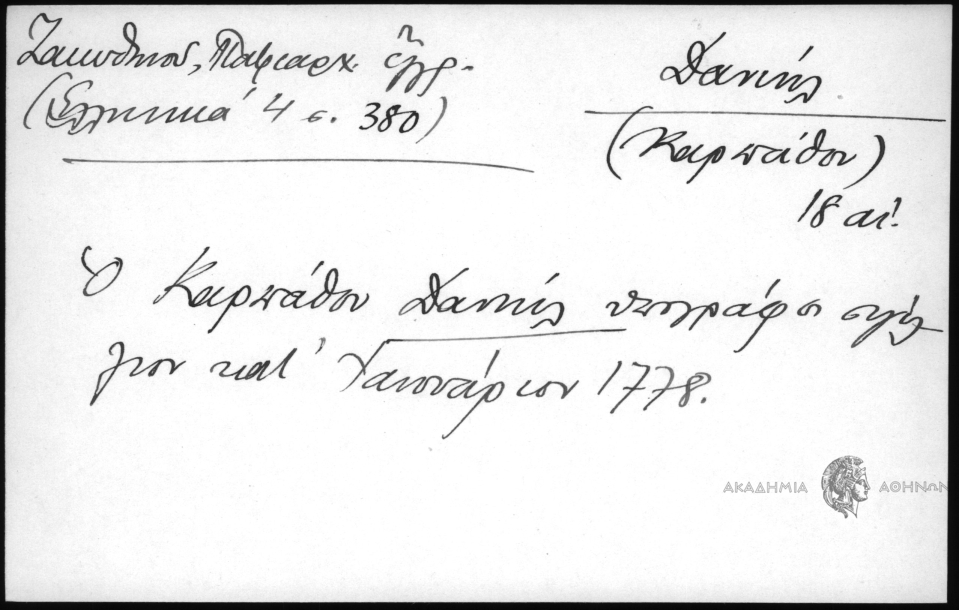 Ζακυθηνού, Πατριαρχ. έγγρ.
(Ελληνικά 4 σ. 380)
Δανιήλ
(Καρπάθου)
18 αι.
Ὁ Καρπάθου Δανιήλ υπογράφει σιγίλ-
λιον κατ' Ιανουάριον 1778.
ΑΚΑΔΗΜΙΑ ΑΘΗΝΩΝ